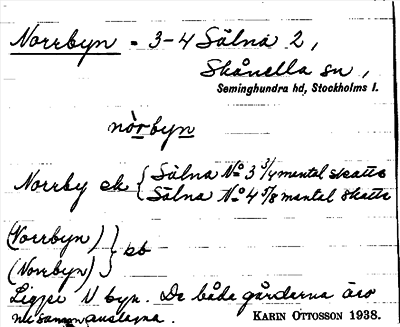 Norrbyn = 3-4 Sälna 2,
Skånella sn,
Seminghundra hd, Stockholms l.
nòrbyn
Norrby ek { Sälna No 3 3/4 mantal skatte
Sälna No 4 5/8 mantal skatte
(Norrbyn) } kb
(Norrbyn)
Ligger N byn. De båda gårderna äro
nu sammanslagna.
KARIN OTTOSSON 1938.